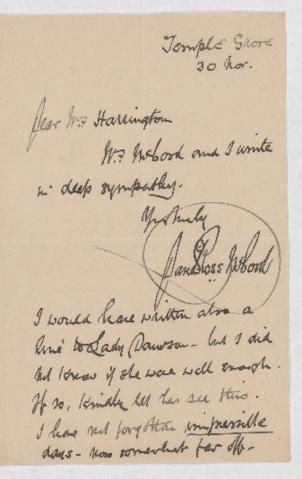 Temple Grove
30 Nov.
Dear Mrs Harrington
Mrs McLeod and I write
in deep sympathy.
Yrs truly
I would have written also a
line to Lady Dawson - but I did
not know if she were well enough.
If so, kindly let her see this.
I have not forgotten impossible
days - now somewhat far off -